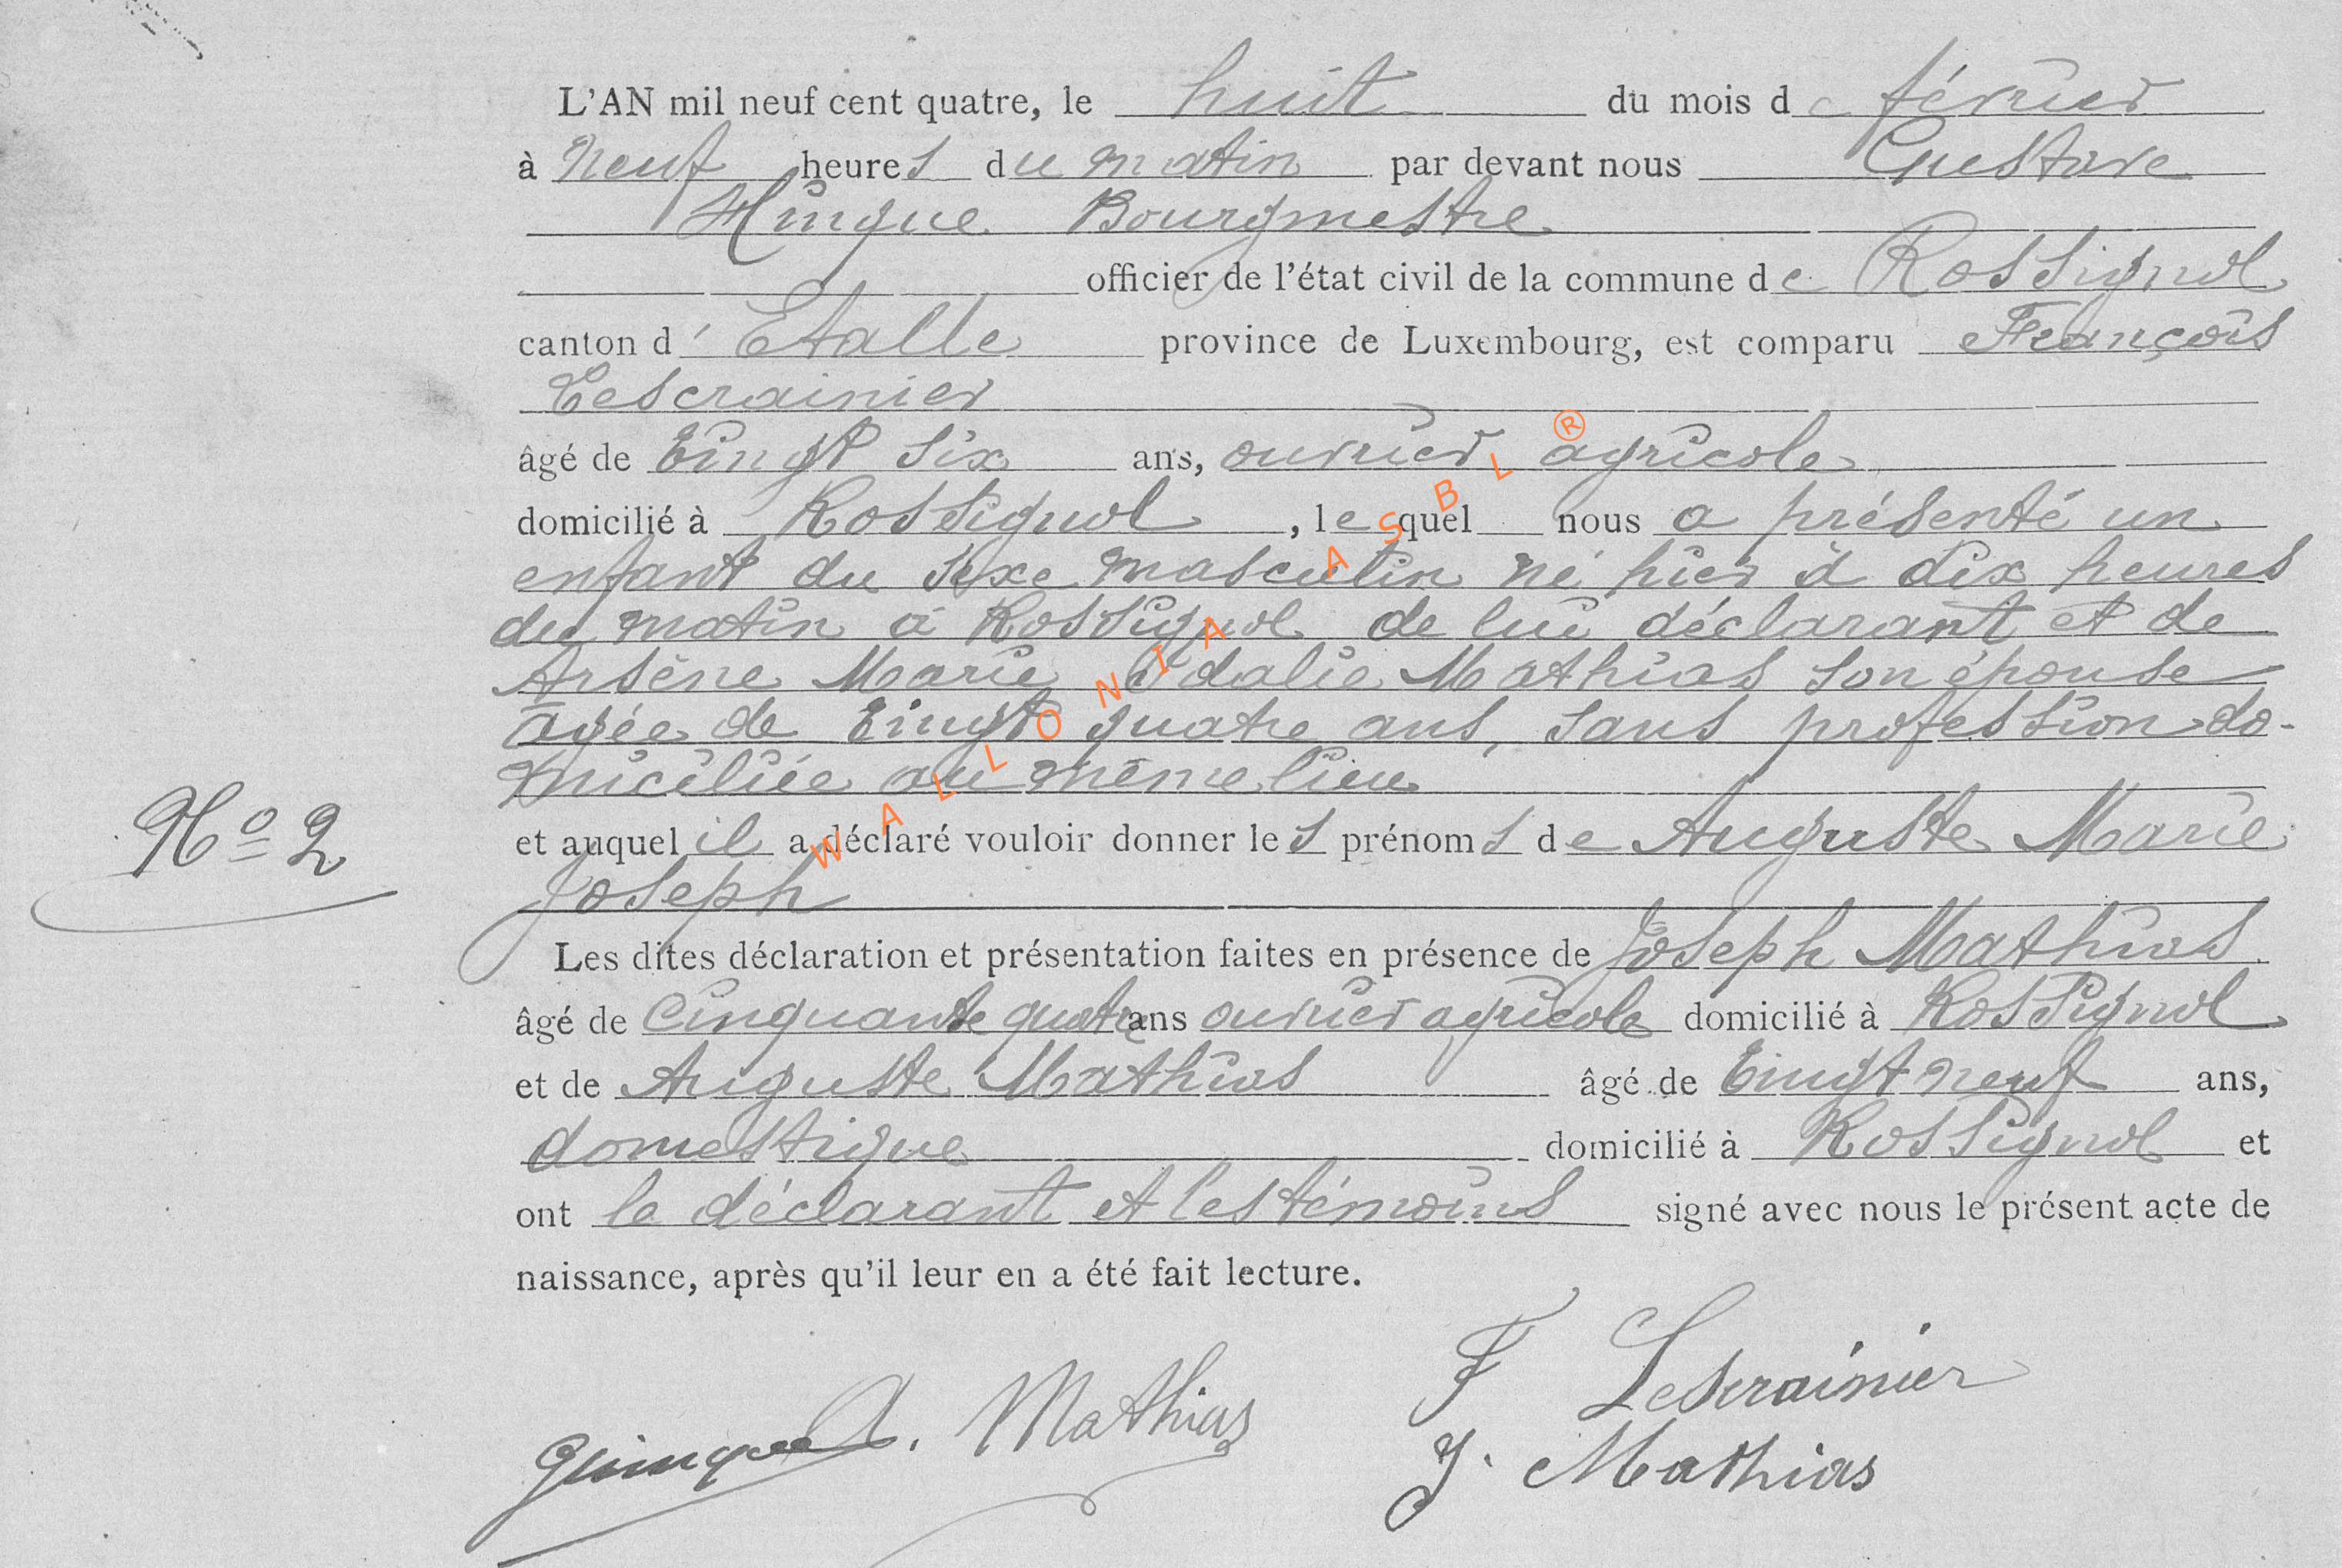 L'AN mil neuf cent quatre, le huit du mois de février
à neuf heures du matin par devant nous Gustave
Hinque Bourgmestre
officier de l'état civil de la commune de Rossignol
canton d'Etalle province de Luxembourg, est comparu François
Lescrainier
âgé de vingt six ans, ouvrier agricole
domicilié à Rossignol, lequel nous a présenté un
enfant du sexe masculin né hier à dix heures
du matin à Rossignol de lui déclarant et de
Arsène Marie Odalie Mathias son épouse
âgée de vingt quatre ans, sans profession do-
miciliée au même lieu
No 2
et auquel il a déclaré vouloir donner les prénoms de Auguste Marie
Joseph
Les dites déclaration et présentation faites en présence de Joseph Mathias
âgé de cinquante quatre ans ouvrier agricole domicilié à Rossignol
et de Auguste Mathias âgé de vingt neuf ans,
domestique domicilié à Rossignol et
ont le déclarant et les témoins signé avec nous le présent acte de
naissance, après qu'il leur en a été fait lecture.
F Lescrainier
A. Mathias
J. Mathias
WALLONIA ASBL ®